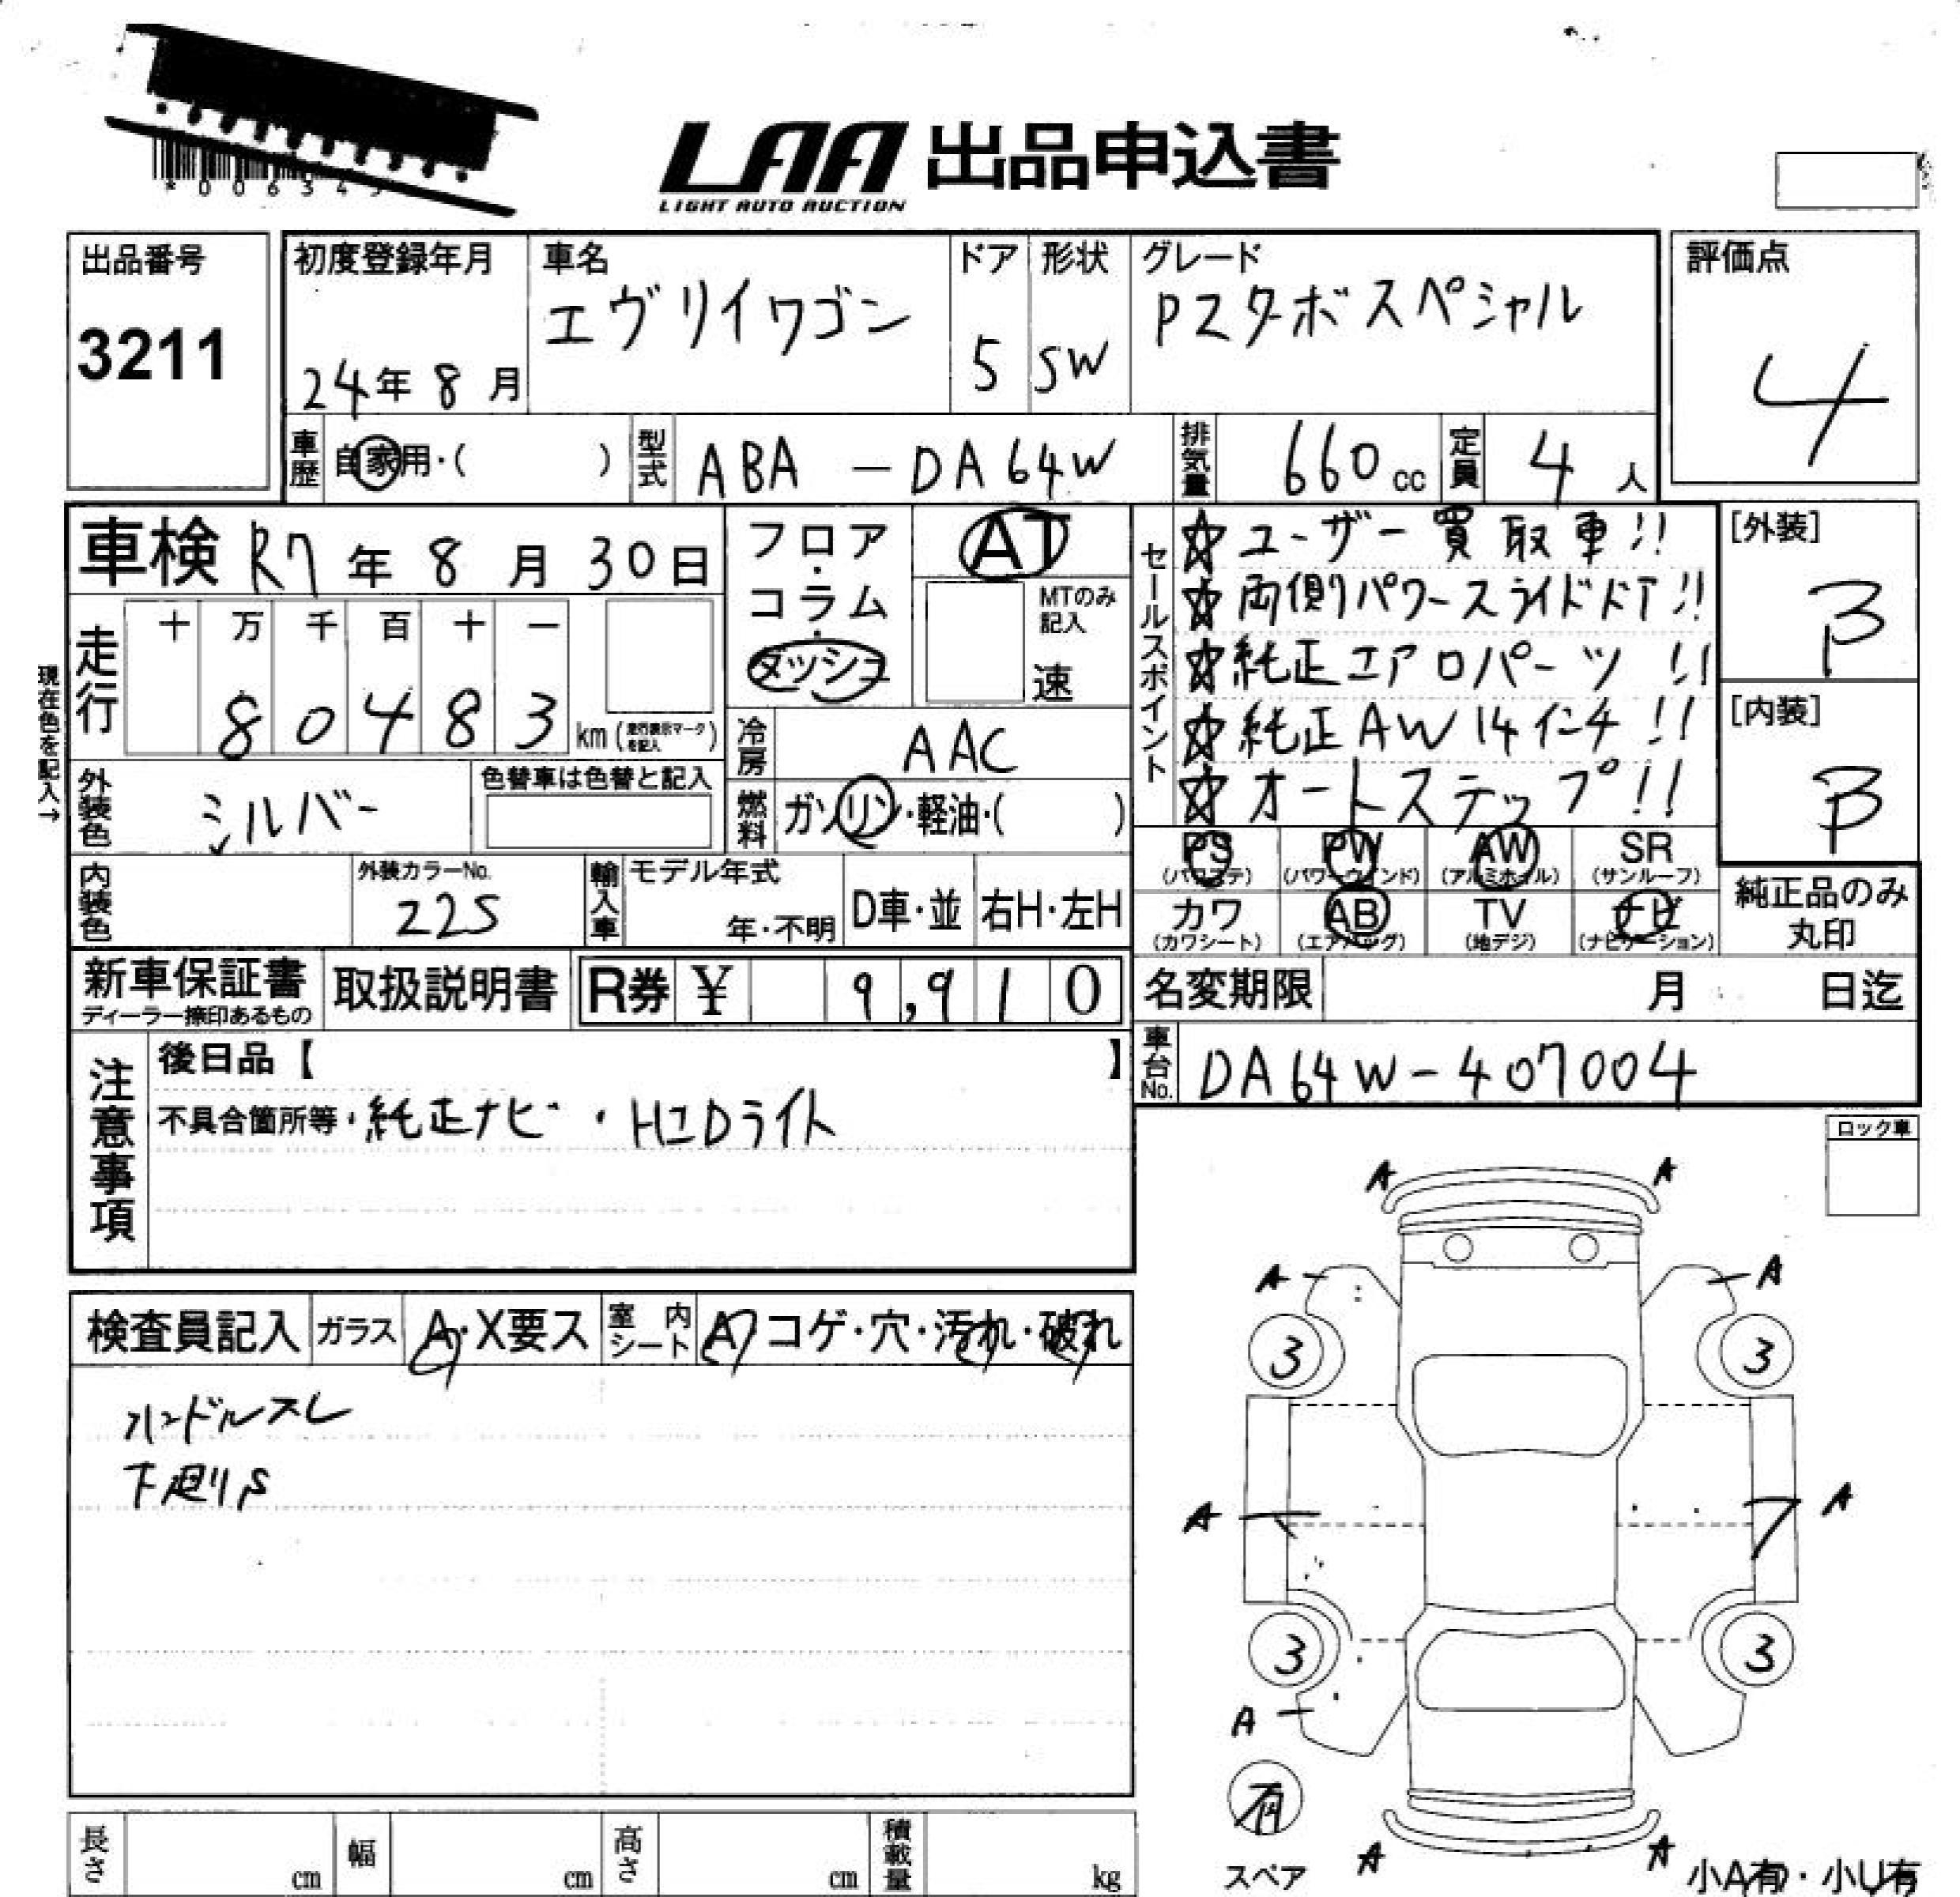 *00634
LAA 出品申込書
LIGHT AUTO AUCTION
出品番号
3211
初度登録年月
24年 8 月
車名
エヴリイワゴン
ドア
5
形状
SW
グレード
PZターボスペシャル
評価点
4
車歴
自家用・( )
型式
ABA - DA64W
排気量
660 cc
定員
4 人
車検 R7 年 8 月 30 日
走行
十 万 千 百 十 一
8 0 4 8 3 km (走行表示マークを記入)
現在色を記入→
外装色
シルバー
色替車は色替と記入
内装色
外装カラーNo.
Z2S
輸入車
モデル年式
年・不明
D車・並
右H・左H
フロア・コラム・ダッシュ
AT
MTのみ記入
速
冷房
AAC
燃料
ガソリン・軽油・( )
セールスポイント
☆ユーザー買取車!!
☆両側パワースライドドア!!
☆純正エアロパーツ!!
☆純正AW14インチ!!
☆オートステップ!!
PS
(パワステ)
PW
(パワーウィンド)
AW
(アルミホイル)
SR
(サンルーフ)
カワ
(カワシート)
AB
(エアバッグ)
TV
(地デジ)
ナビ
(ナビゲーション)
[外装]
B
[内装]
B
純正品のみ
丸印
新車保証書
ディーラー捺印あるもの
取扱説明書
R券 ¥ 9,910
名変期限 月 日迄
車台No.
DA64W-407004
注意事項
後日品【 】
不具合箇所等・純正ナビ・HIDライト
ロック車
検査員記入
ガラス
A・X要ス
室内シート
A・コゲ・穴・汚れ・破れ
ハンドルスレ
下廻りS
A A
A A
3 3
A A
3 3
A
有
スペア
A A
小A有・小U有
長さ cm
幅 cm
高さ cm
積載量 kg